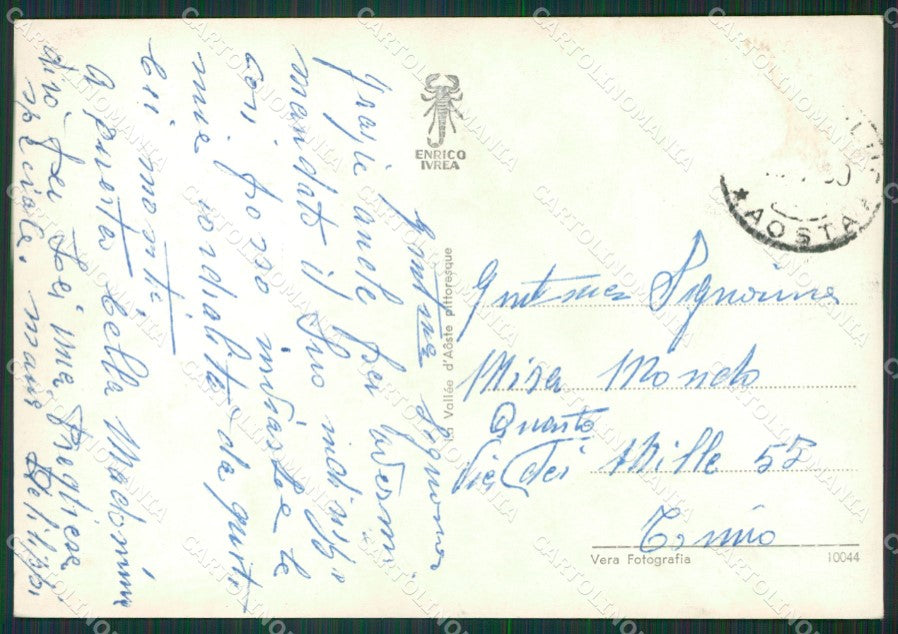 Gent.ma Signorina
grazie anche per avermi
mandato il Suo indirizzo
così posso inviarle le
mie cordialità da questi
bei monti.
A questa bella Madonnina
dirò per Lei una preghiera
speciale.
ENRICO
IVREA
La Vallée d'Aôste pittoresque
AOSTA
Gent.ma Signorina
Mondo
Quarto
Via Dei Mille 52
Torino
Vera Fotografia
10044
CARTOLINOMANIA